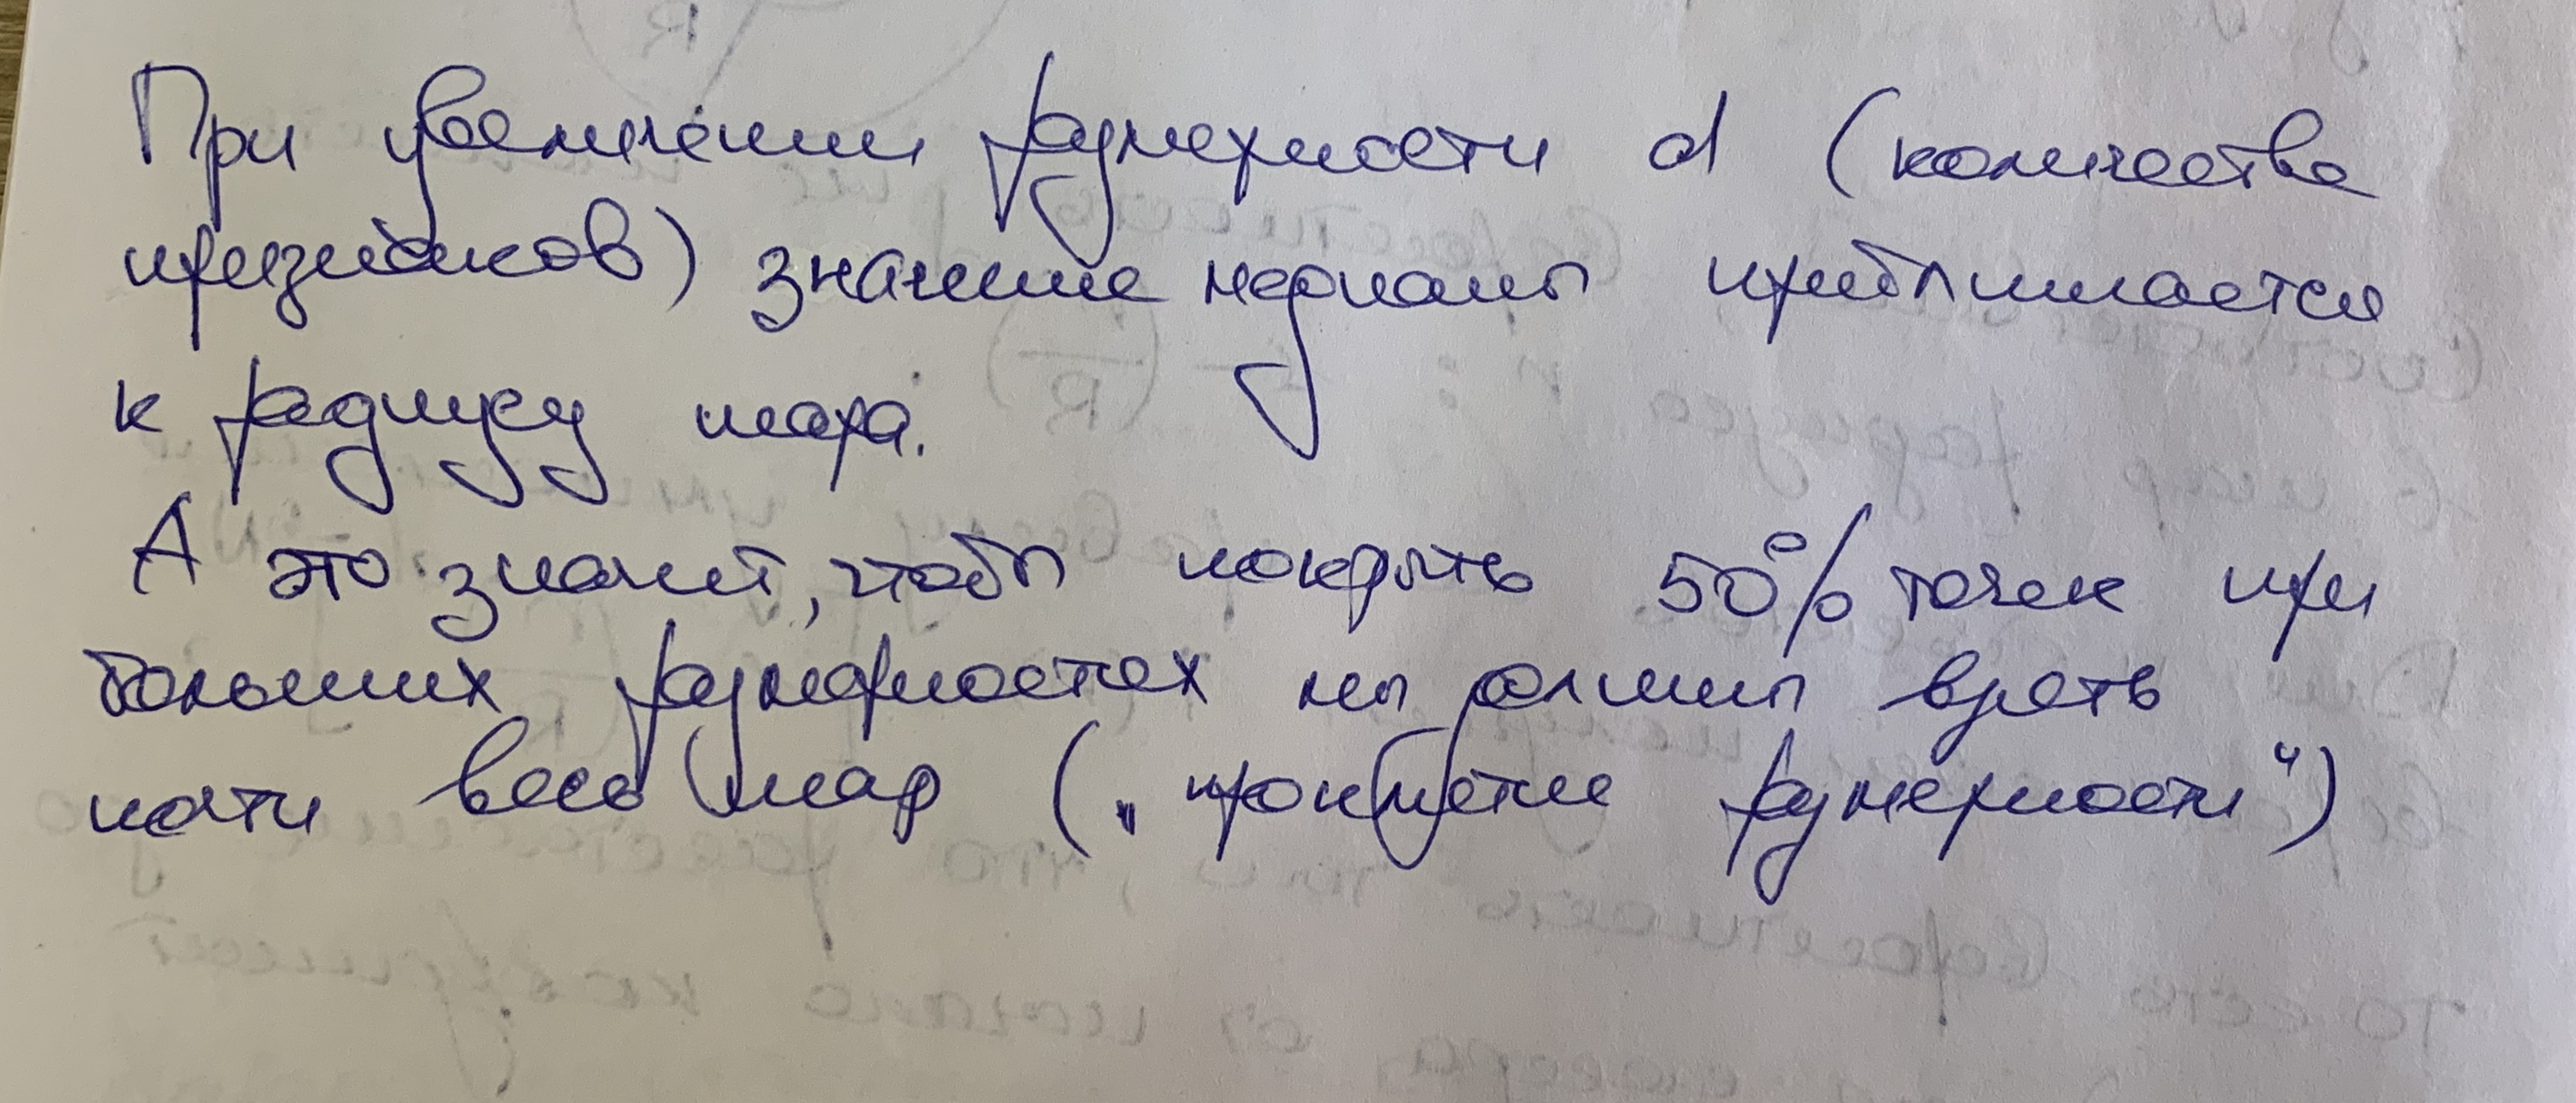 При увеличении размерности d (количества
признаков) значение медианы приближается
к радиусу шара.
А это значит, чтобы покрыть 50% точек при
больших размерностях мы должны брать
почти весь шар („проклятие размерности“)